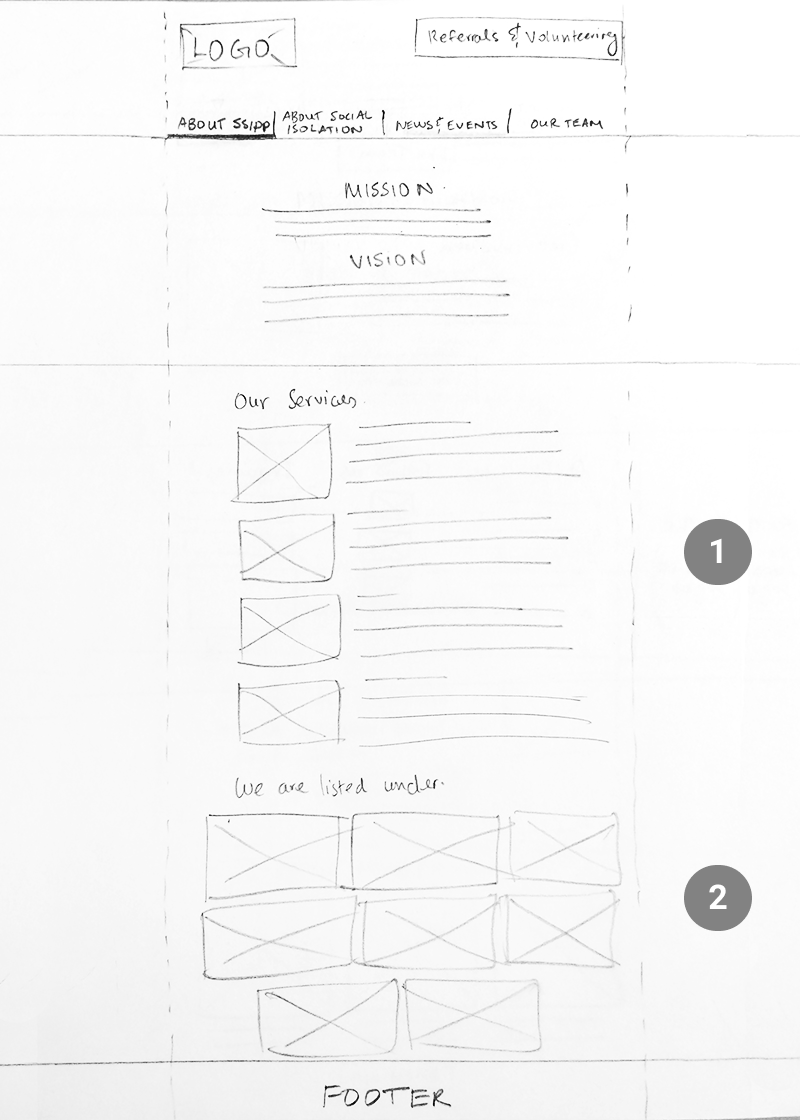 LOGO
Referrals & Volunteering
ABOUT SSIPP
ABOUT SOCIAL
ISOLATION
NEWS & EVENTS
OUR TEAM
MISSION
VISION
Our Services
1
We are listed under.
2
FOOTER